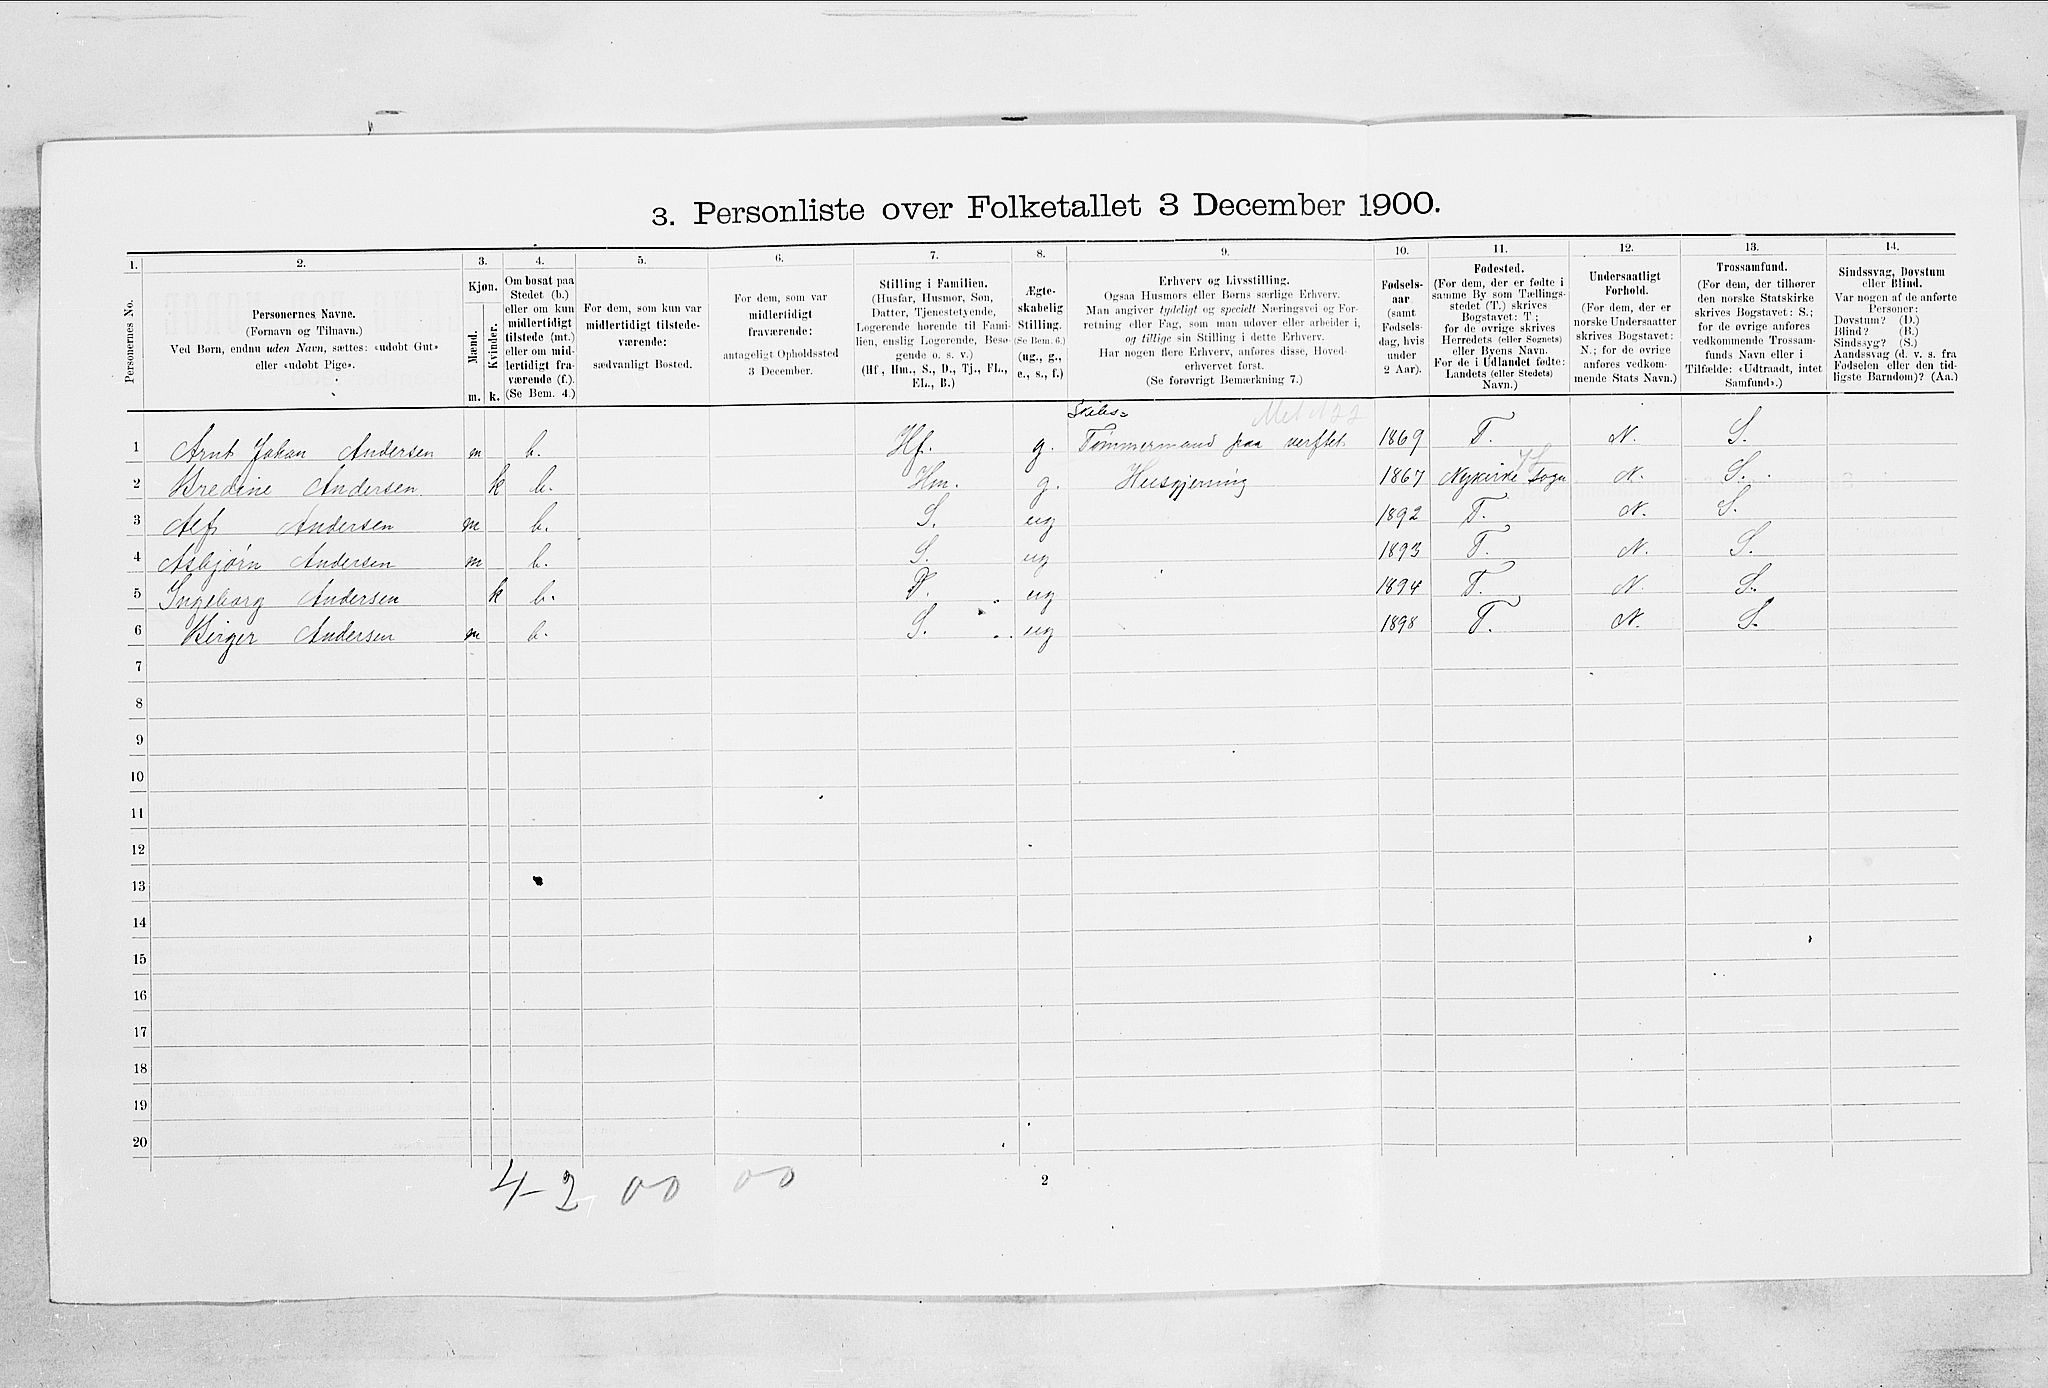 3. Personliste over Folketallet 3 December 1900.
1. 2. 3. 4. 5. 6. 7. 8. 9. 10. 11. 12. 13. 14.
Personernes No.
Personernes Navne.
(Fornavn og Tilnavn.)
Ved Børn, endnu uden Navn, sættes: «udøbt Gut»
eller «udøbt Pige».
Kjøn.
Mænd.
Kvinder.
m. k.
Om bosat paa
Stedet (b.)
eller om kun
midlertidigt
tilstede (mt.)
eller om mid-
lertidigt fra-
værende (f.).
(Se Bem. 4.)
For dem, som kun var
midlertidigt tilstede-
værende:
sædvanligt Bosted.
For dem, som var
midlertidigt
fraværende:
antageligt Opholdssted
3 December.
Stilling i Familien.
(Husfar, Husmor, Søn,
Datter, Tjenestetyende,
Logerende hørende til Fami-
lien, enslig Logerende, Besø-
gende o. s. v.)
(Hf., Hm., S., D., Tj., FL.,
EL., B.)
Ægte-
skabelig
Stilling.
(Se Bem. 6.)
(ug., g.,
e., s., f.)
Erhverv og Livsstilling.
Ogsaa Husmors eller Børns særlige Erhverv.
Man angiver tydeligt og specielt Næringsvei og For-
retning eller Fag, som man udøver eller arbeider i,
og tillige sin Stilling i dette Erhverv.
Har nogen flere Erhverv, anføres disse, Hoved-
erhvervet først.
(Se forøvrigt Bemærkning 7.)
Fødsels-
aar
(samt
Fødsels-
dag, hvis
under
2 Aar).
Fødested.
(For dem, der er fødte i
samme By som Tællings-
stedet (T.) skrives
Bogstavet: T.;
for de øvrige skrives
Herredets (eller Sognets)
eller Byens Navn.
For de i Udlandet fødte:
Landets (eller Stedets)
Navn.)
Undersaatligt
Forhold.
(For dem, der er
norske Undersaatter
skrives Bogstavet:
N.; for de øvrige
anføres vedkom-
mende Stats Navn.)
Trossamfund.
(For dem, der tilhører
den norske Statskirke
skrives Bogstavet: S.;
for de øvrige anføres
vedkommende Trossam-
funds Navn eller i
Tilfælde: «Udtraadt, intet
Samfund».)
Sindssvag, Døvstum
eller Blind.
Var nogen af de anførte
Personer:
Døvstum? (D.)
Blind? (B.)
Sindssyg? (S.)
Aandssvag (d. v. s. fra
Fødselen eller den tid-
ligste Barndom)? (Aa.)
Skibs=
1 Arnt Johan Andersen m b. Hf. g. Tømmermand paa verftet 1869 T. N. S.
2 Bredine Andersen k b. Hm. g. Husgjerning 1867 Nykirke Sogn N. S.
3 Alf Andersen m b. S. ug 1892 T. N. S.
4 Asbjørn Andersen m b. S. ug 1893 T. N. S.
5 Ingeborg Andersen k b. D. ug 1894 T. N. S.
6 Birger Andersen m b. S. ug 1898 T. N. S.
7
8
9
10
11
12
13
14
15
16
17
18
19
20
4-2 00 00
2